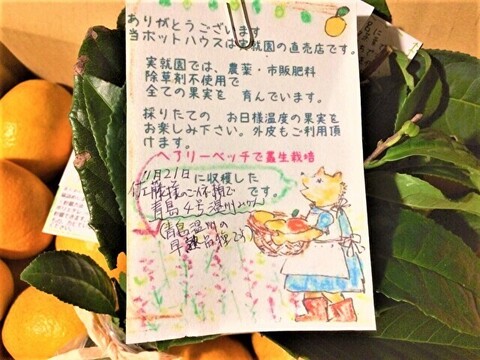 ありがとうございます
当ホットハウスは実就園の直売店です。
実就園では、農薬・市販肥料
除草剤不使用で
全ての果実を 育んでいます。
採りたての お日様温度の果実を
お楽しみ下さい。外皮もご利用頂
けます。
ヘアリーベッチで草生栽培
11月21日に収穫した
佐藤様のご依頼で
です。
青島4号温州みかん
(青島温州の
早熟品種です)